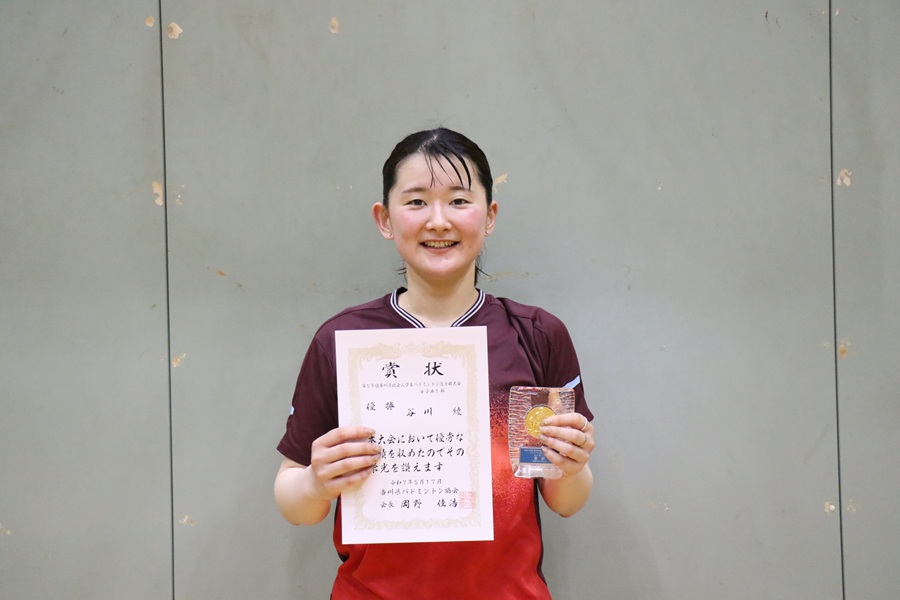 賞状
優勝 谷川 綾
本大会において優秀な
成績を収めたのでその
栄光を讃えます
令和7年5月17日
香川県バドミントン協会
会長 岡野 佳浩